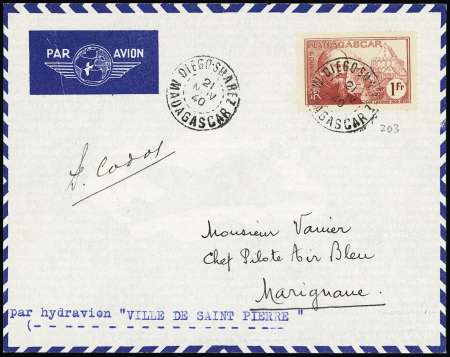 PAR AVION
DIEGO-SUAREZ
21
40
MADAGASCAR
MADAGASCAR
1Fr
DIEGO-SUAREZ
21
MADAGASCAR
203
Codos
Monsieur Vanier
Chef Pilote Air Bleu
Marignane.
par hydravion "VILLE DE SAINT PIERRE "
(- - - - - - - - - - - - - - - - - - - -